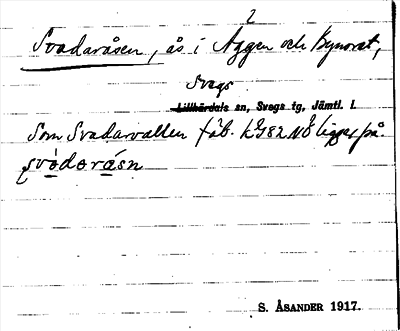 2
Svadaråsen, ås i Äggen och Bynorat,
Svegs
Lillhärdals sn, Svegs tg, Jämtl. l.
Som Svadarvallen fäb. ligger på.
S. ÅSANDER 1917.